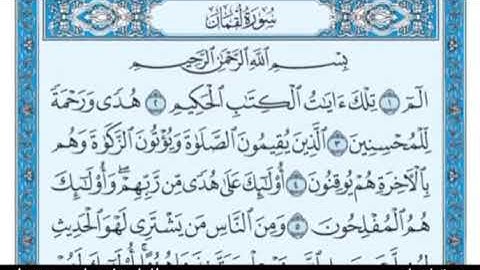 سُورَةُ لُقْمَانَ
بِسْمِ اللَّهِ الرَّحْمَٰنِ الرَّحِيمِ
الٓمٓ ١ تِلْكَ ءَايَٰتُ ٱلْكِتَٰبِ ٱلْحَكِيمِ ٢ هُدًى وَرَحْمَةً
لِّلْمُحْسِنِينَ ٣ ٱلَّذِينَ يُقِيمُونَ ٱلصَّلَوٰةَ وَيُؤْتُونَ ٱلزَّكَوٰةَ وَهُم
بِٱلْءَاخِرَةِ هُمْ يُوقِنُونَ ٤ أُو۟لَٰٓئِكَ عَلَىٰ هُدًى مِّن رَّبِّهِمْ ۖ وَأُو۟لَٰٓئِكَ
هُمُ ٱلْمُفْلِحُونَ ٥ وَمِنَ ٱلنَّاسِ مَن يَشْتَرِى لَهْوَ ٱلْحَدِيثِ